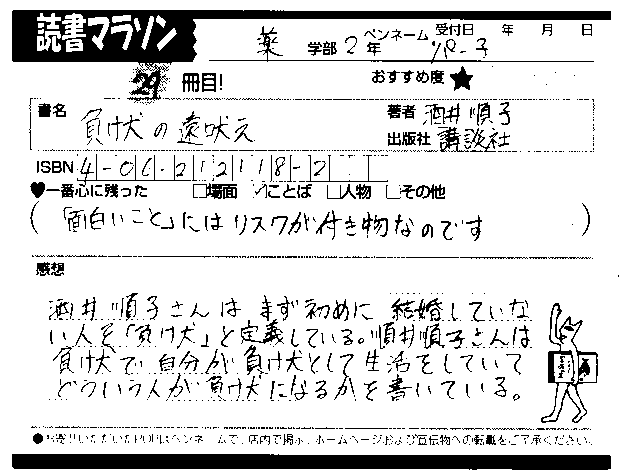 読書マラソン
薬 学部 2 年 ペンネーム 受付日 年 月 日
29 冊目! おすすめ度 ★
書名 負け犬の遠吠え 著者 酒井順子
出版社 講談社
ISBN 4-06-212118-2
♥一番心に残った □場面 ☑ことば □人物 □その他
(「面白いこと」にはリスクが付き物なのです)
感想
酒井順子さんはまず初めに結婚していな
い人を「負け犬」と定義している。順井順子さんは
負け犬で自分が負け犬として生活をしていて
どういう人が負け犬になるかを書いている。
●お寄せいただいたPOPはペンネームで、店内で掲示、ホームページおよび宣伝物への転載をご了承ください。